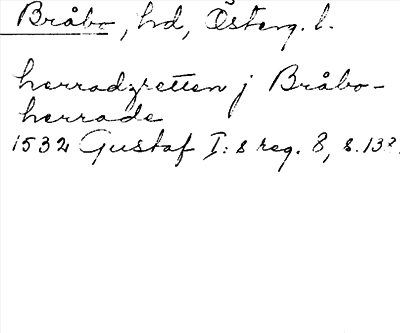 Bråbo, hd, Österg. l.
herradzretten j Bråbo-
herrade
1532 Gustaf I:s reg. 8, s. 13